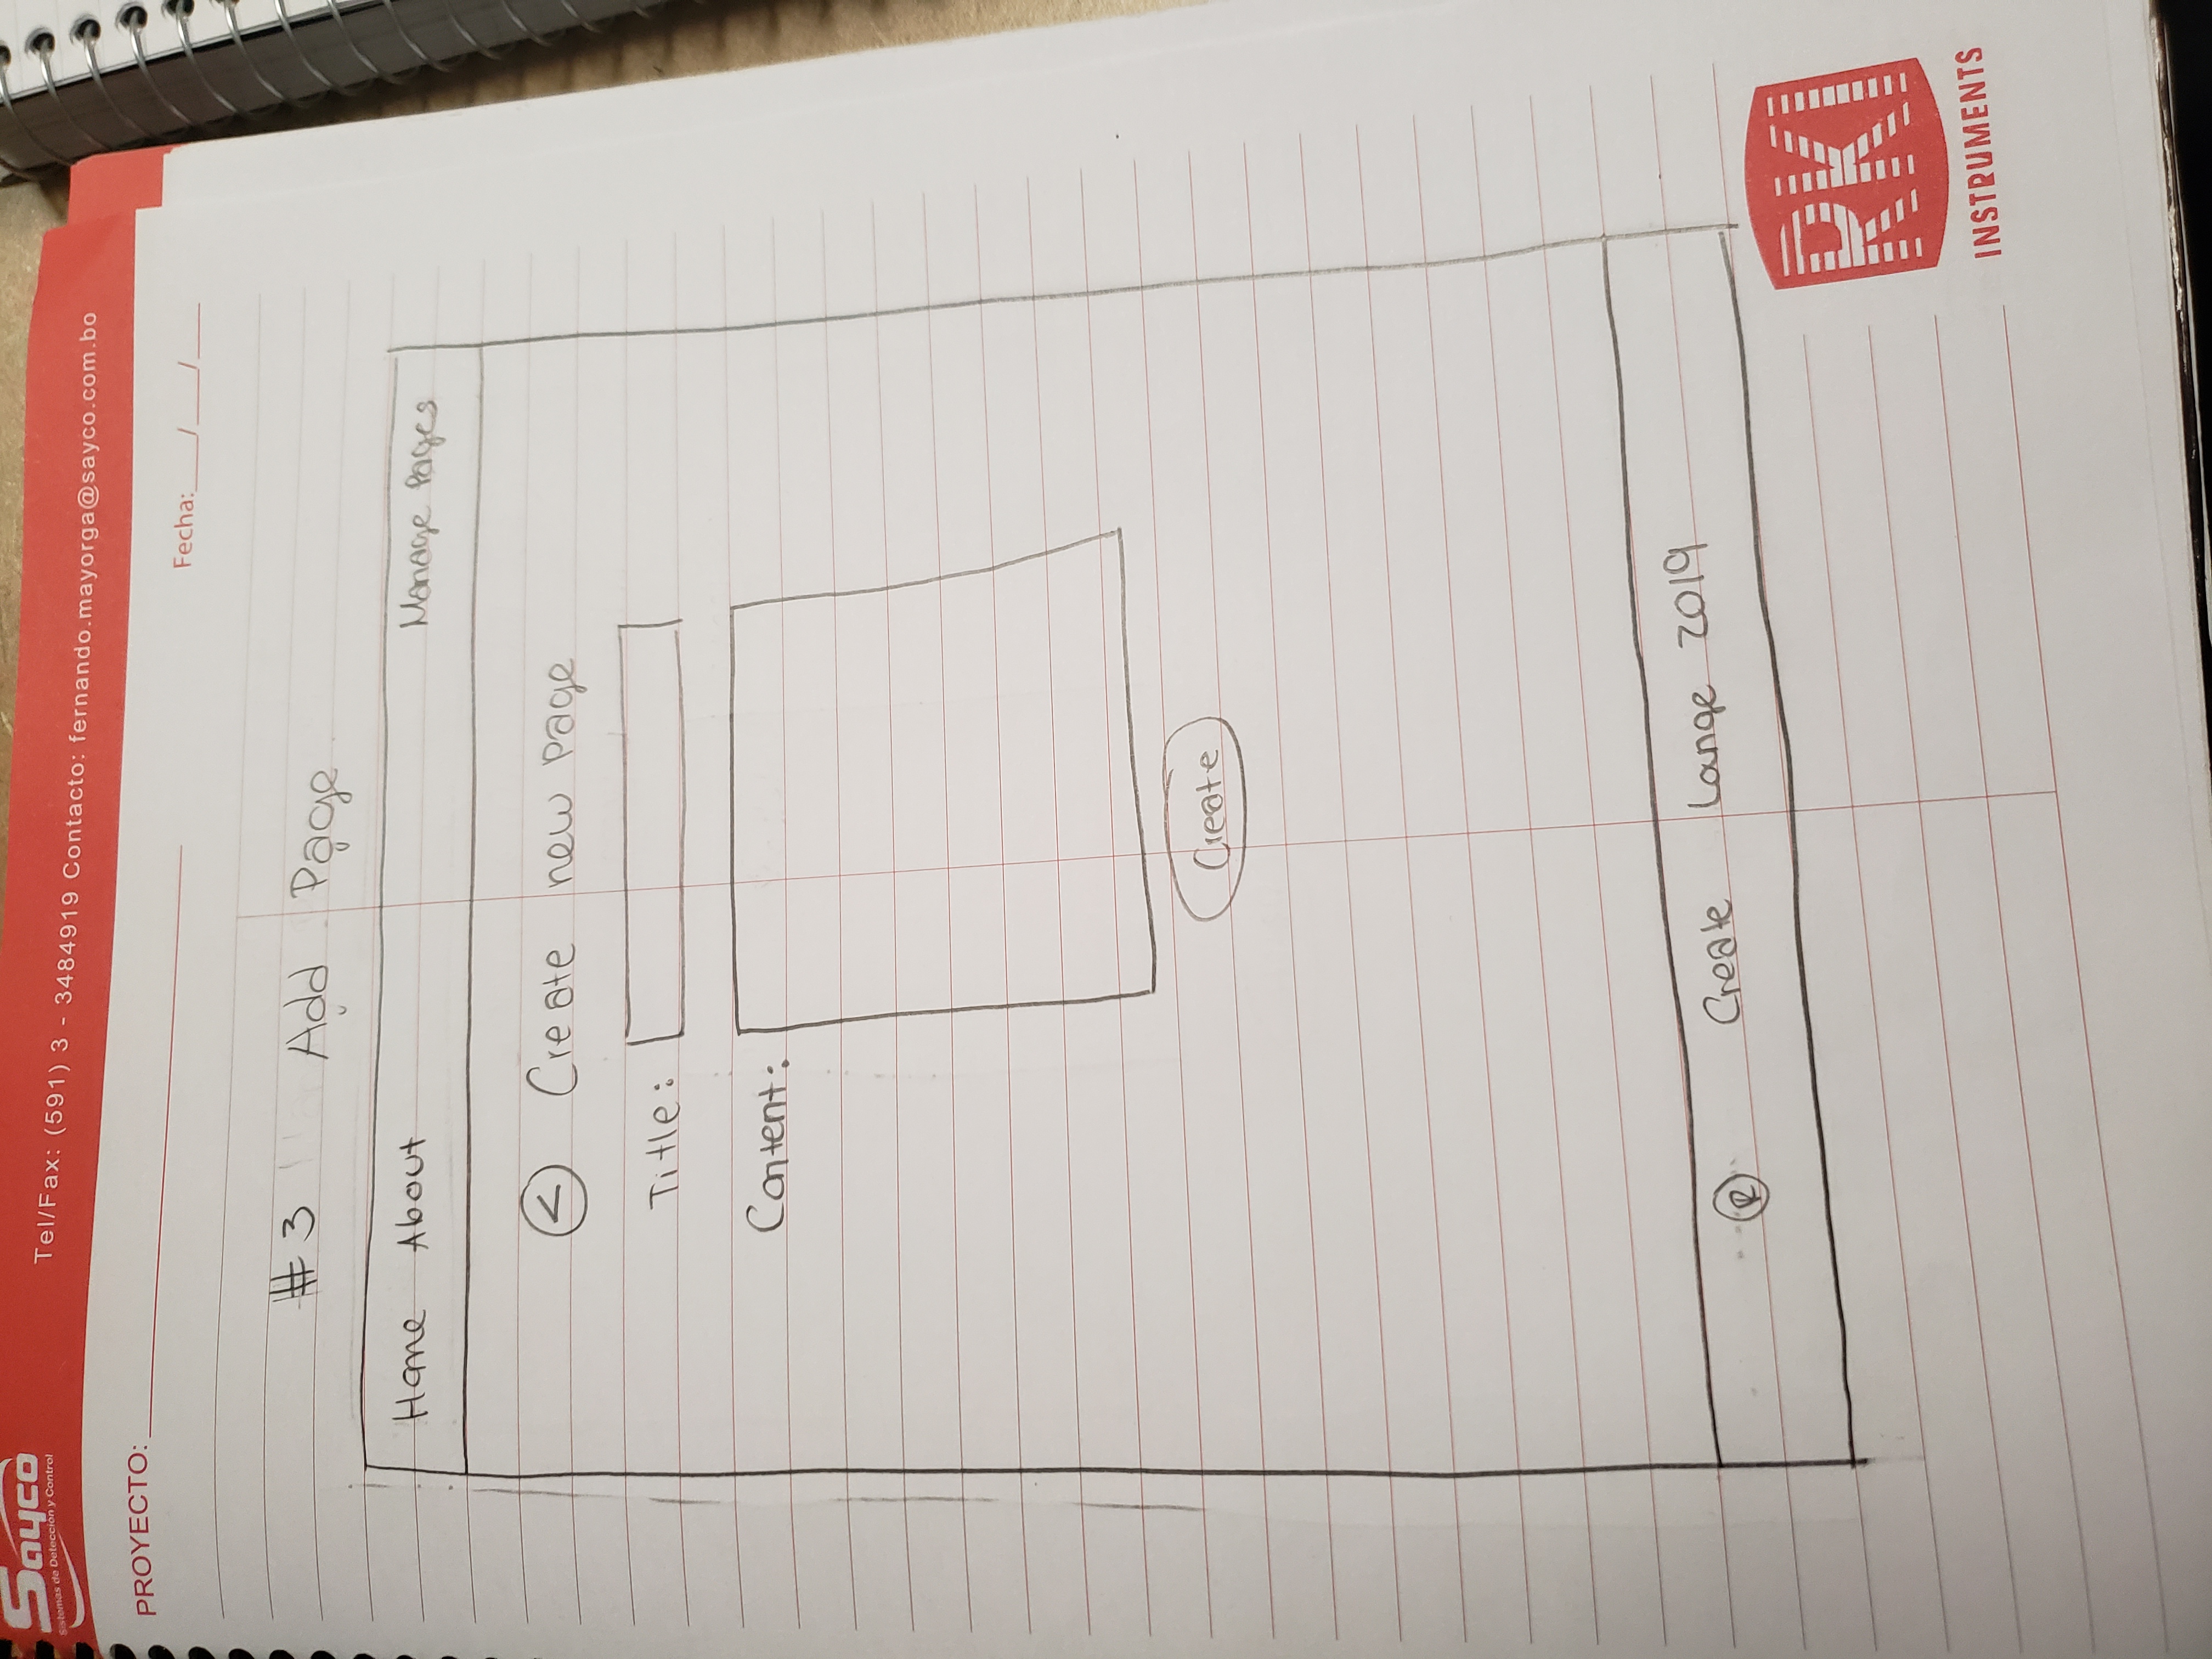 Sayco
Sistemas de Detección y Control
Tel/Fax: (591) 3 - 3484919 Contacto: fernando.mayorga@sayco.com.bo
PROYECTO:
Fecha:___/___/___
#3 Add Page
Home About Manage Pages
< Create new page
Title:
Content:
Create
® Create Lange 2019
RKI
INSTRUMENTS